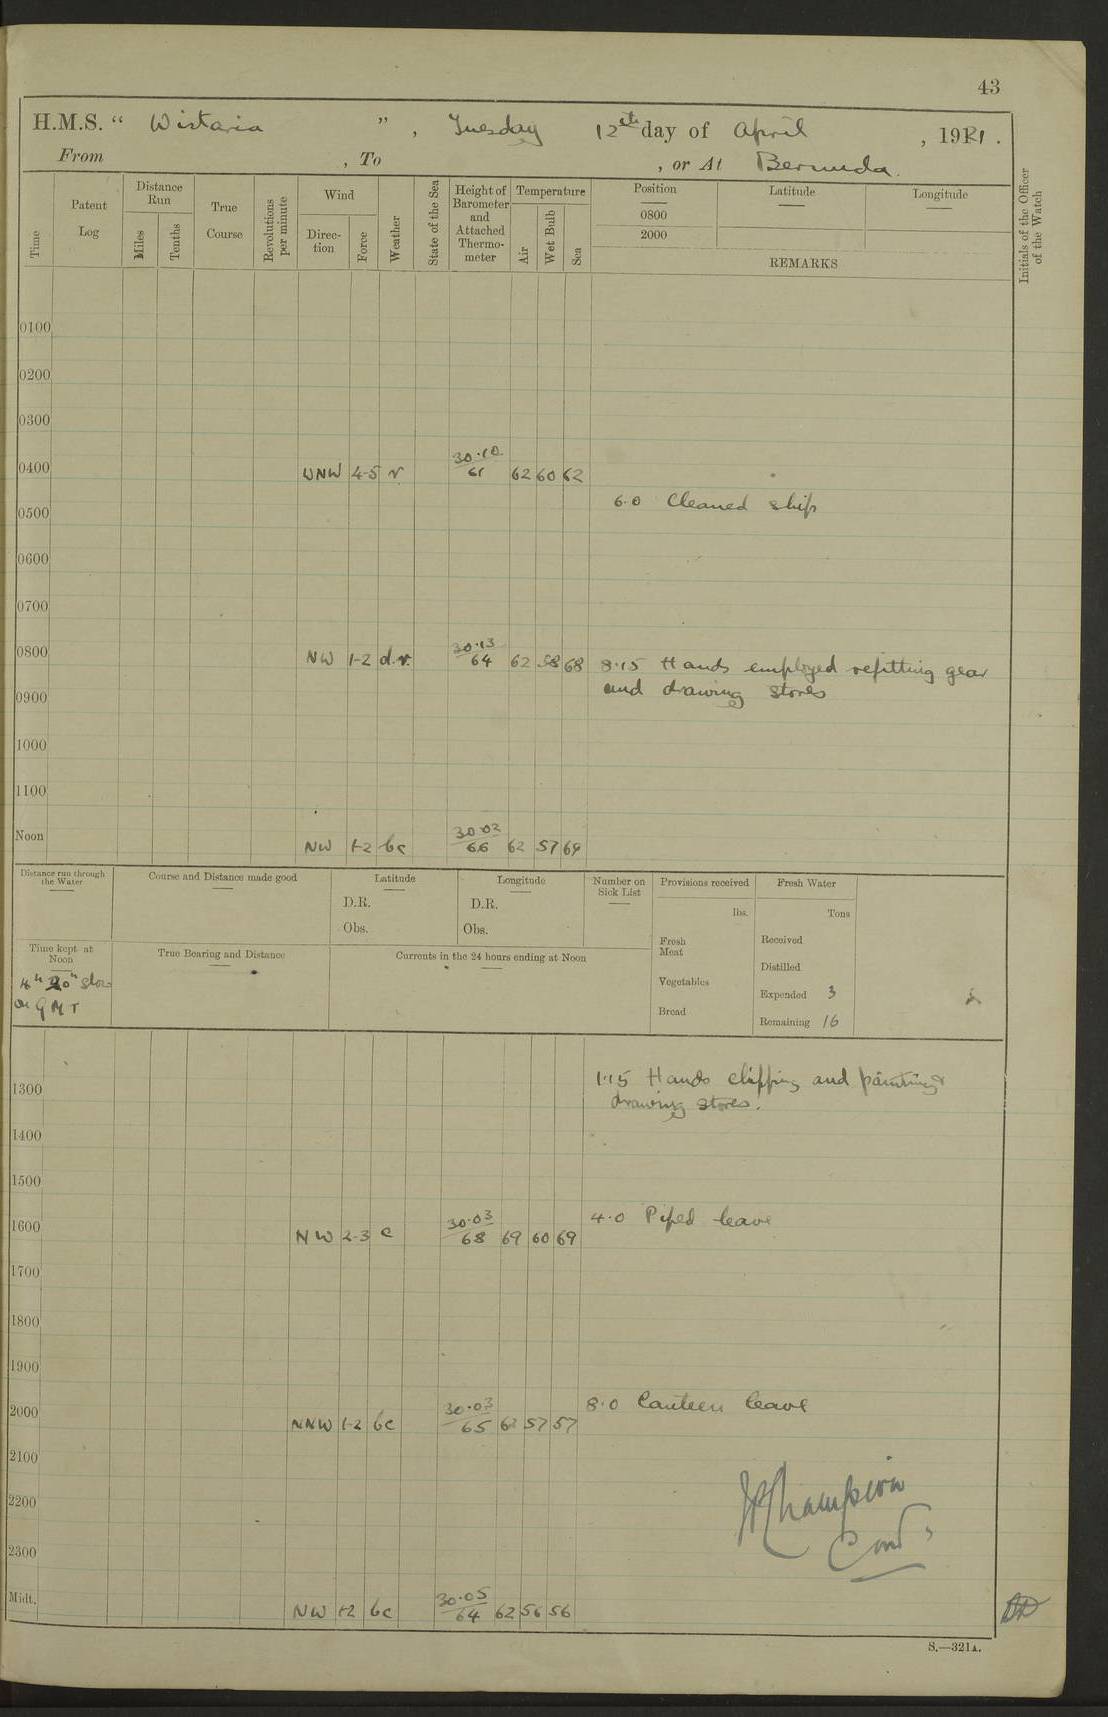 43
H.M.S. " Wistaria " , Tuesday 12th day of April , 1921 .
From , To , or At Bermuda.
Time
Patent Log
Distance Run
Miles
Tenths
True Course
Revolutions per minute
Wind
Direc-tion
Force
Weather
State of the Sea
Height of Barometer and Attached Thermo-meter
Temperature
Air
Wet Bulb
Sea
Position
0800
2000
Latitude
Longitude
REMARKS
Initials of the Officer of the Watch
0100
0200
0300
0400 WNW 4-5 r 30.10 61 62 60 62
6.0 Cleaned ship
0500
0600
0700
0800 NW 1-2 d.r. 30.13 64 62 58 68 8.15 Hands employed refitting gear
and drawing stores
0900
1000
1100
Noon NW 1-2 bc 30.02 66 62 57 69
Distance run through the Water
Course and Distance made good
Latitude
D.R.
Obs.
Longitude
D.R.
Obs.
Number on Sick List
Provisions received
lbs.
Fresh Meat
Vegetables
Bread
Fresh Water
Tons
Received
Distilled
Expended 3
Remaining 16
Time kept at Noon
4h 20m slow
on GMT
True Bearing and Distance
Currents in the 24 hours ending at Noon
1300 1.15 Hands chipping and painting &
drawing stores.
1400
1500
1600 NW 2-3 c 30.03 68 69 60 69 4.0 Piped leave
1700
1800
1900
2000 NNW 1-2 bc 30.03 65 62 57 57 8.0 Canteen leave
2100
2200
2300
Champion
Comdr
Midt. NW 1-2 bc 30.05 64 62 56 56
S.—321A.